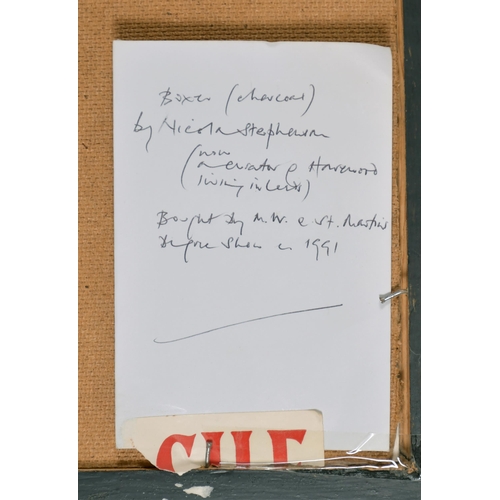 Boxer (charcoal)
by Nicola Stephenson
(now
a curator @ Harewood
living in Leeds)
Bought by M.W. @ St. Martins
degree show in 1991